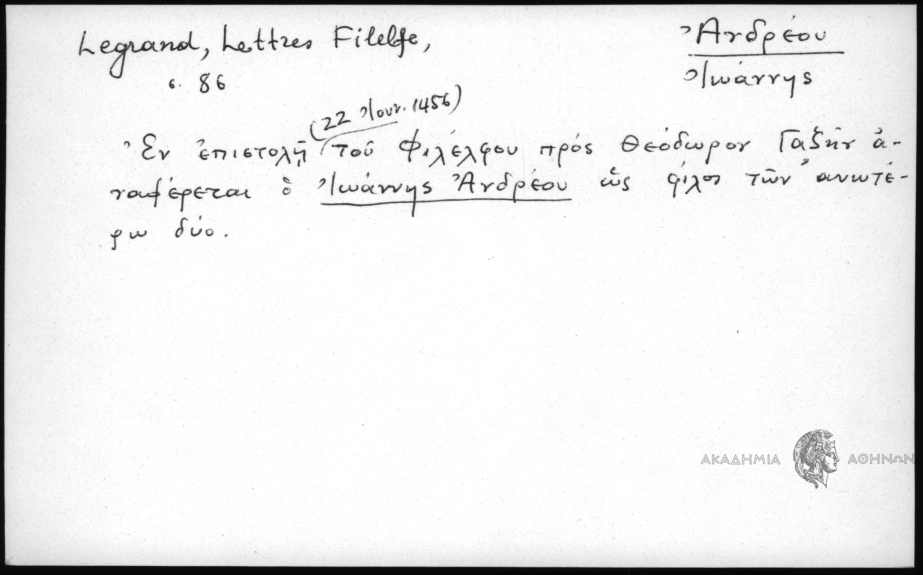 Legrand, Lettres Filelfe,
σ. 86
Ἀνδρέου
Ἰωάννης
(22 Ἰουν. 1456)
Ἐν ἐπιστολῇ τοῦ Φιλέλφου πρὸς Θεόδωρον Γαζῆν ἀ-
ναφέρεται ὁ Ἰωάννης Ἀνδρέου ὡς φίλος τῶν ἀνωτέ-
ρω δύο.
ΑΚΑΔΗΜΙΑ ΑΘΗΝΩΝ